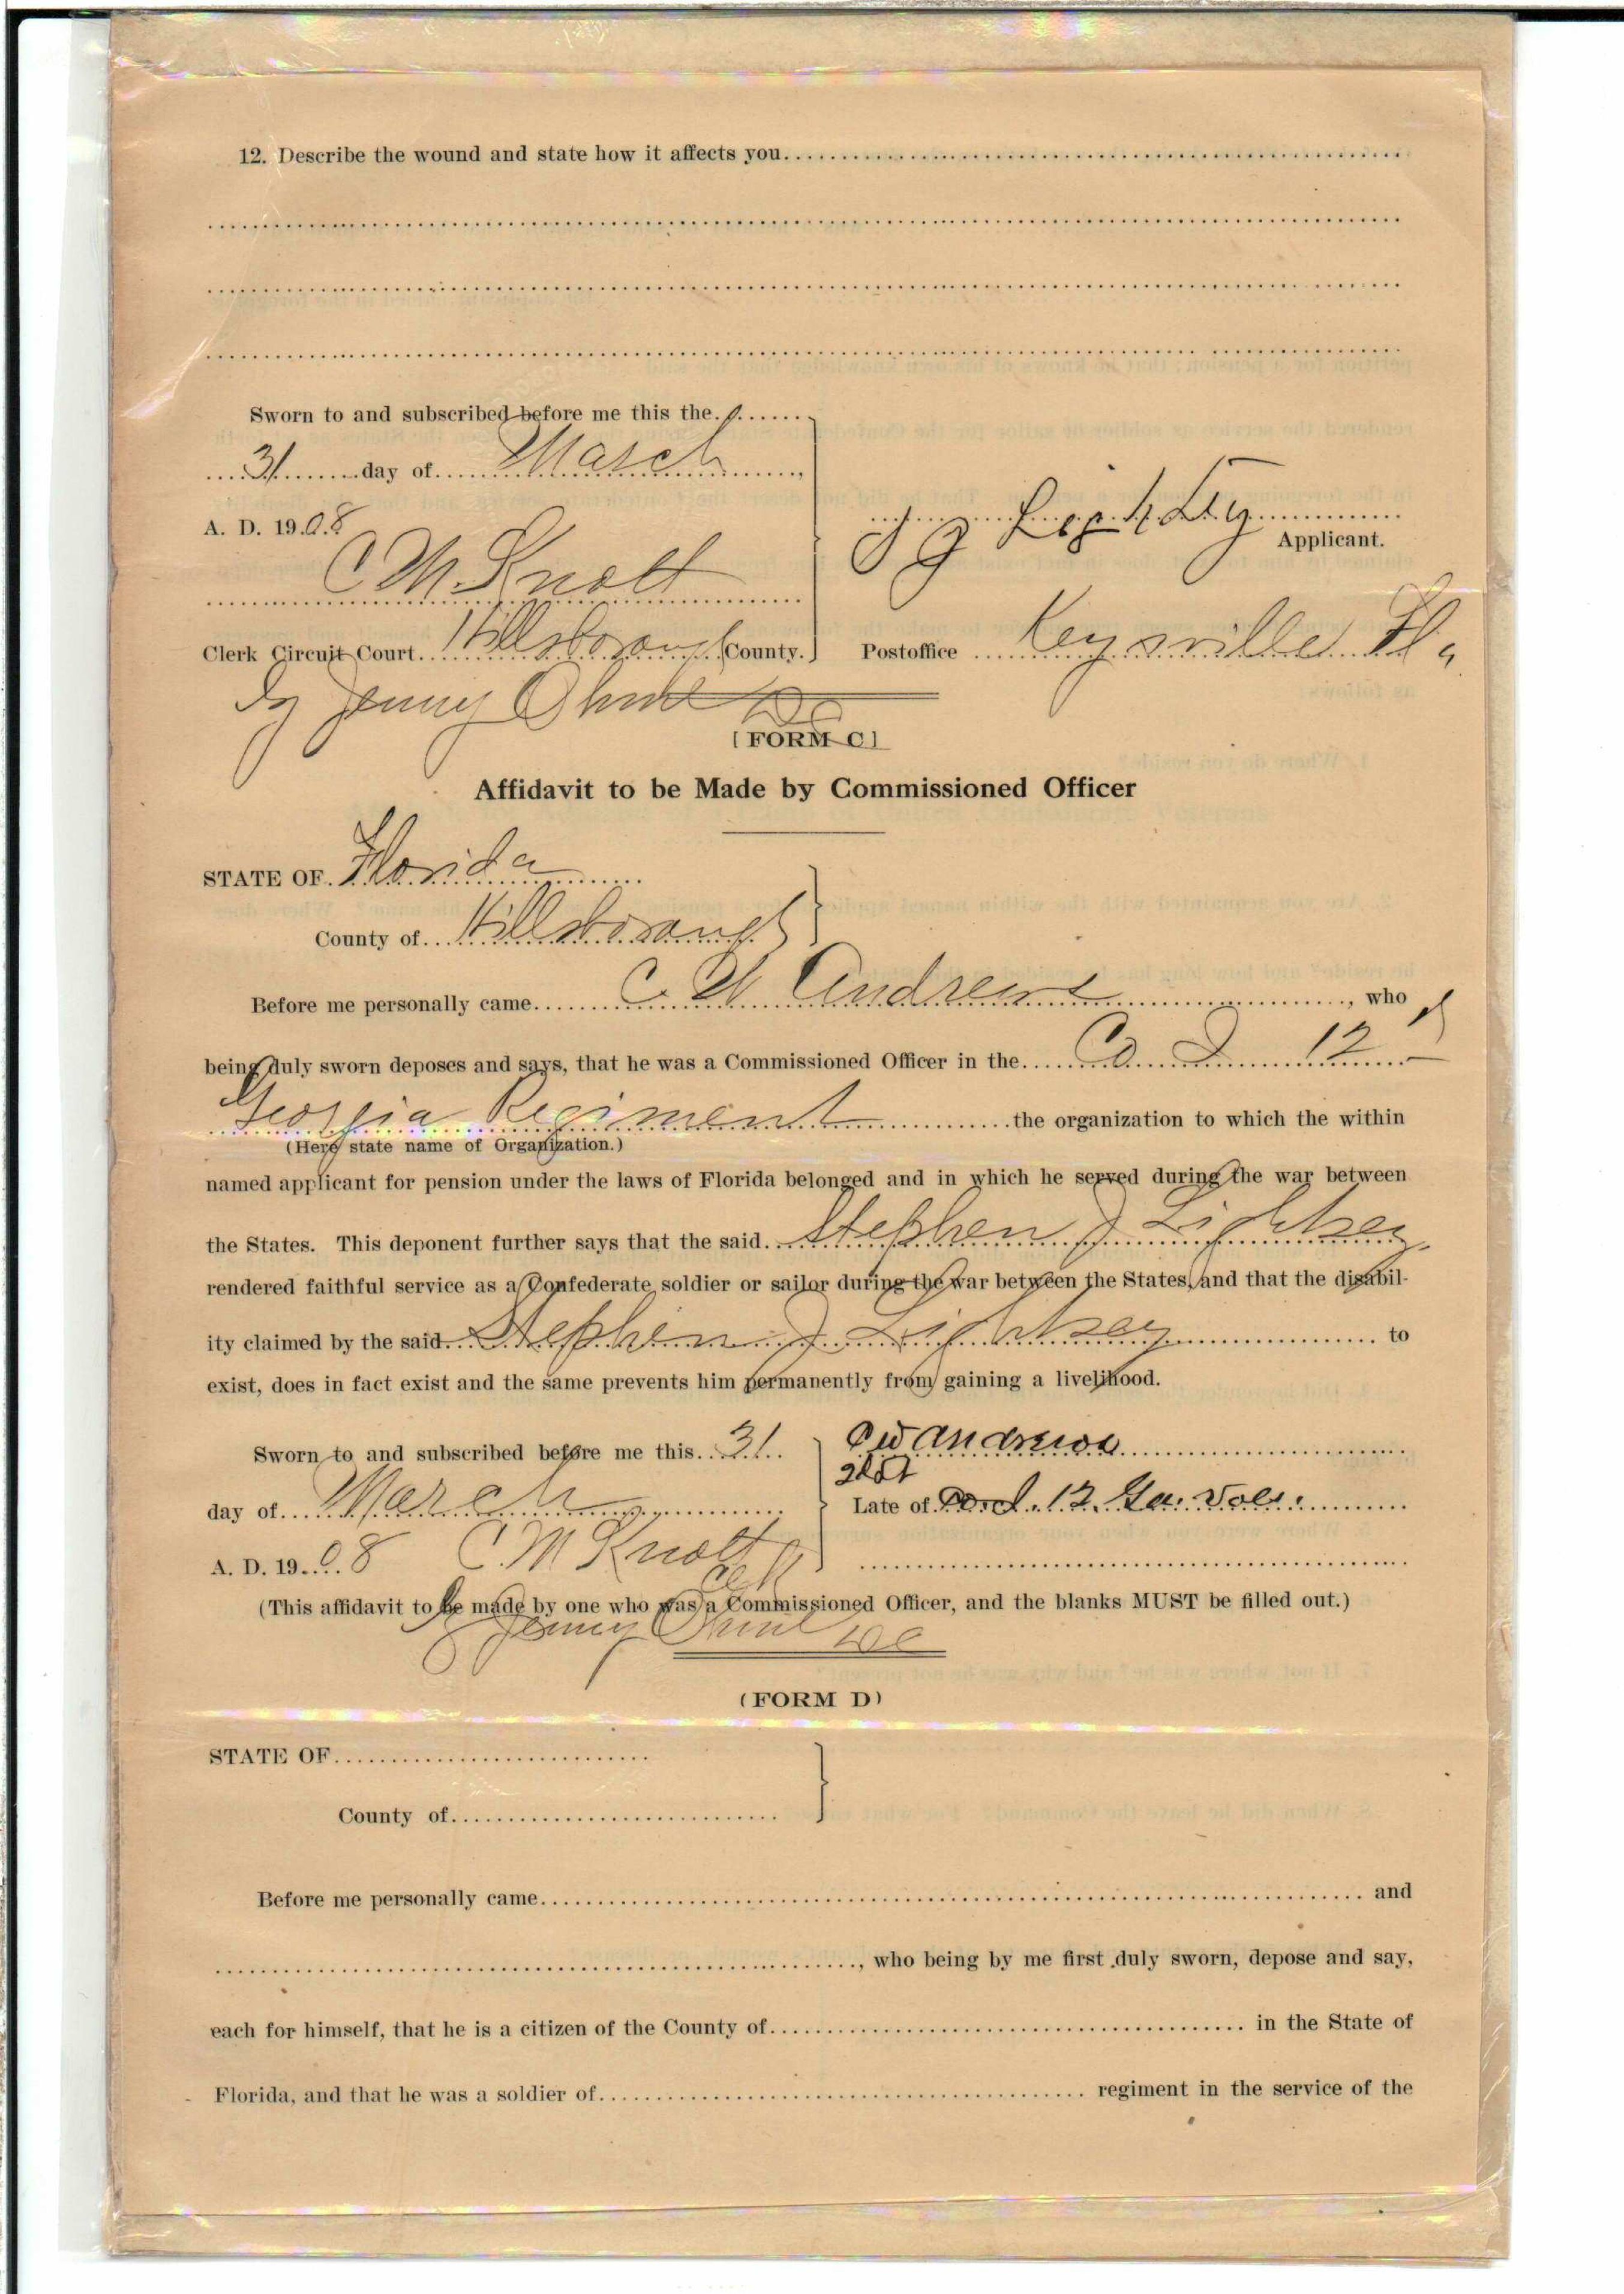 12. Describe the wound and state how it affects you
Sworn to and subscribed before me this the
31 day of March
A. D. 1908
S J
Applicant.
C M Knott
Clerk Circuit Court Hillsborough County.
Postoffice Keysville Fla
By
[FORM C]
Affidavit to be Made by Commissioned Officer
STATE OF Florida
County of Hillsborough
Before me personally came C. W. Andrews, who
being duly sworn deposes and says, that he was a Commissioned Officer in the Co. D 12
Georgia Regiment the organization to which the within
(Here state name of Organization.)
named applicant for pension under the laws of Florida belonged and in which he served during the war between
the States. This deponent further says that the said Stephen J Lightsey
rendered faithful service as a Confederate soldier or sailor during the war between the States, and that the disabil-
ity claimed by the said Stephen J Lightsey to
exist, does in fact exist and the same prevents him permanently from gaining a livelihood.
Sworn to and subscribed before me this 31
CW Andrews
day of March
Late of 12 Ga. Vols.
A. D. 1908 C. M Knott
Clk
(This affidavit to be made by one who was a Commissioned Officer, and the blanks MUST be filled out.)
(FORM D)
STATE OF
County of
Before me personally came and
, who being by me first duly sworn, depose and say,
each for himself, that he is a citizen of the County of in the State of
Florida, and that he was a soldier of regiment in the service of the